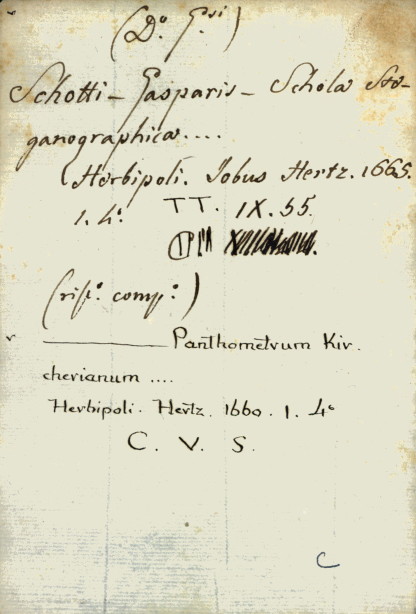 (D.º G.si)
Schotti - Gasparis - Schola Ste-
ganographica....
Herbipoli. Jobus Hertz. 1665.
1. 4.º TT. IX. 55.
(risp.º comp.º)
———— Panthometrum Kir.
cherianum ....
Herbipoli. Hertz. 1660. 1. 4º
C. V. S.
C